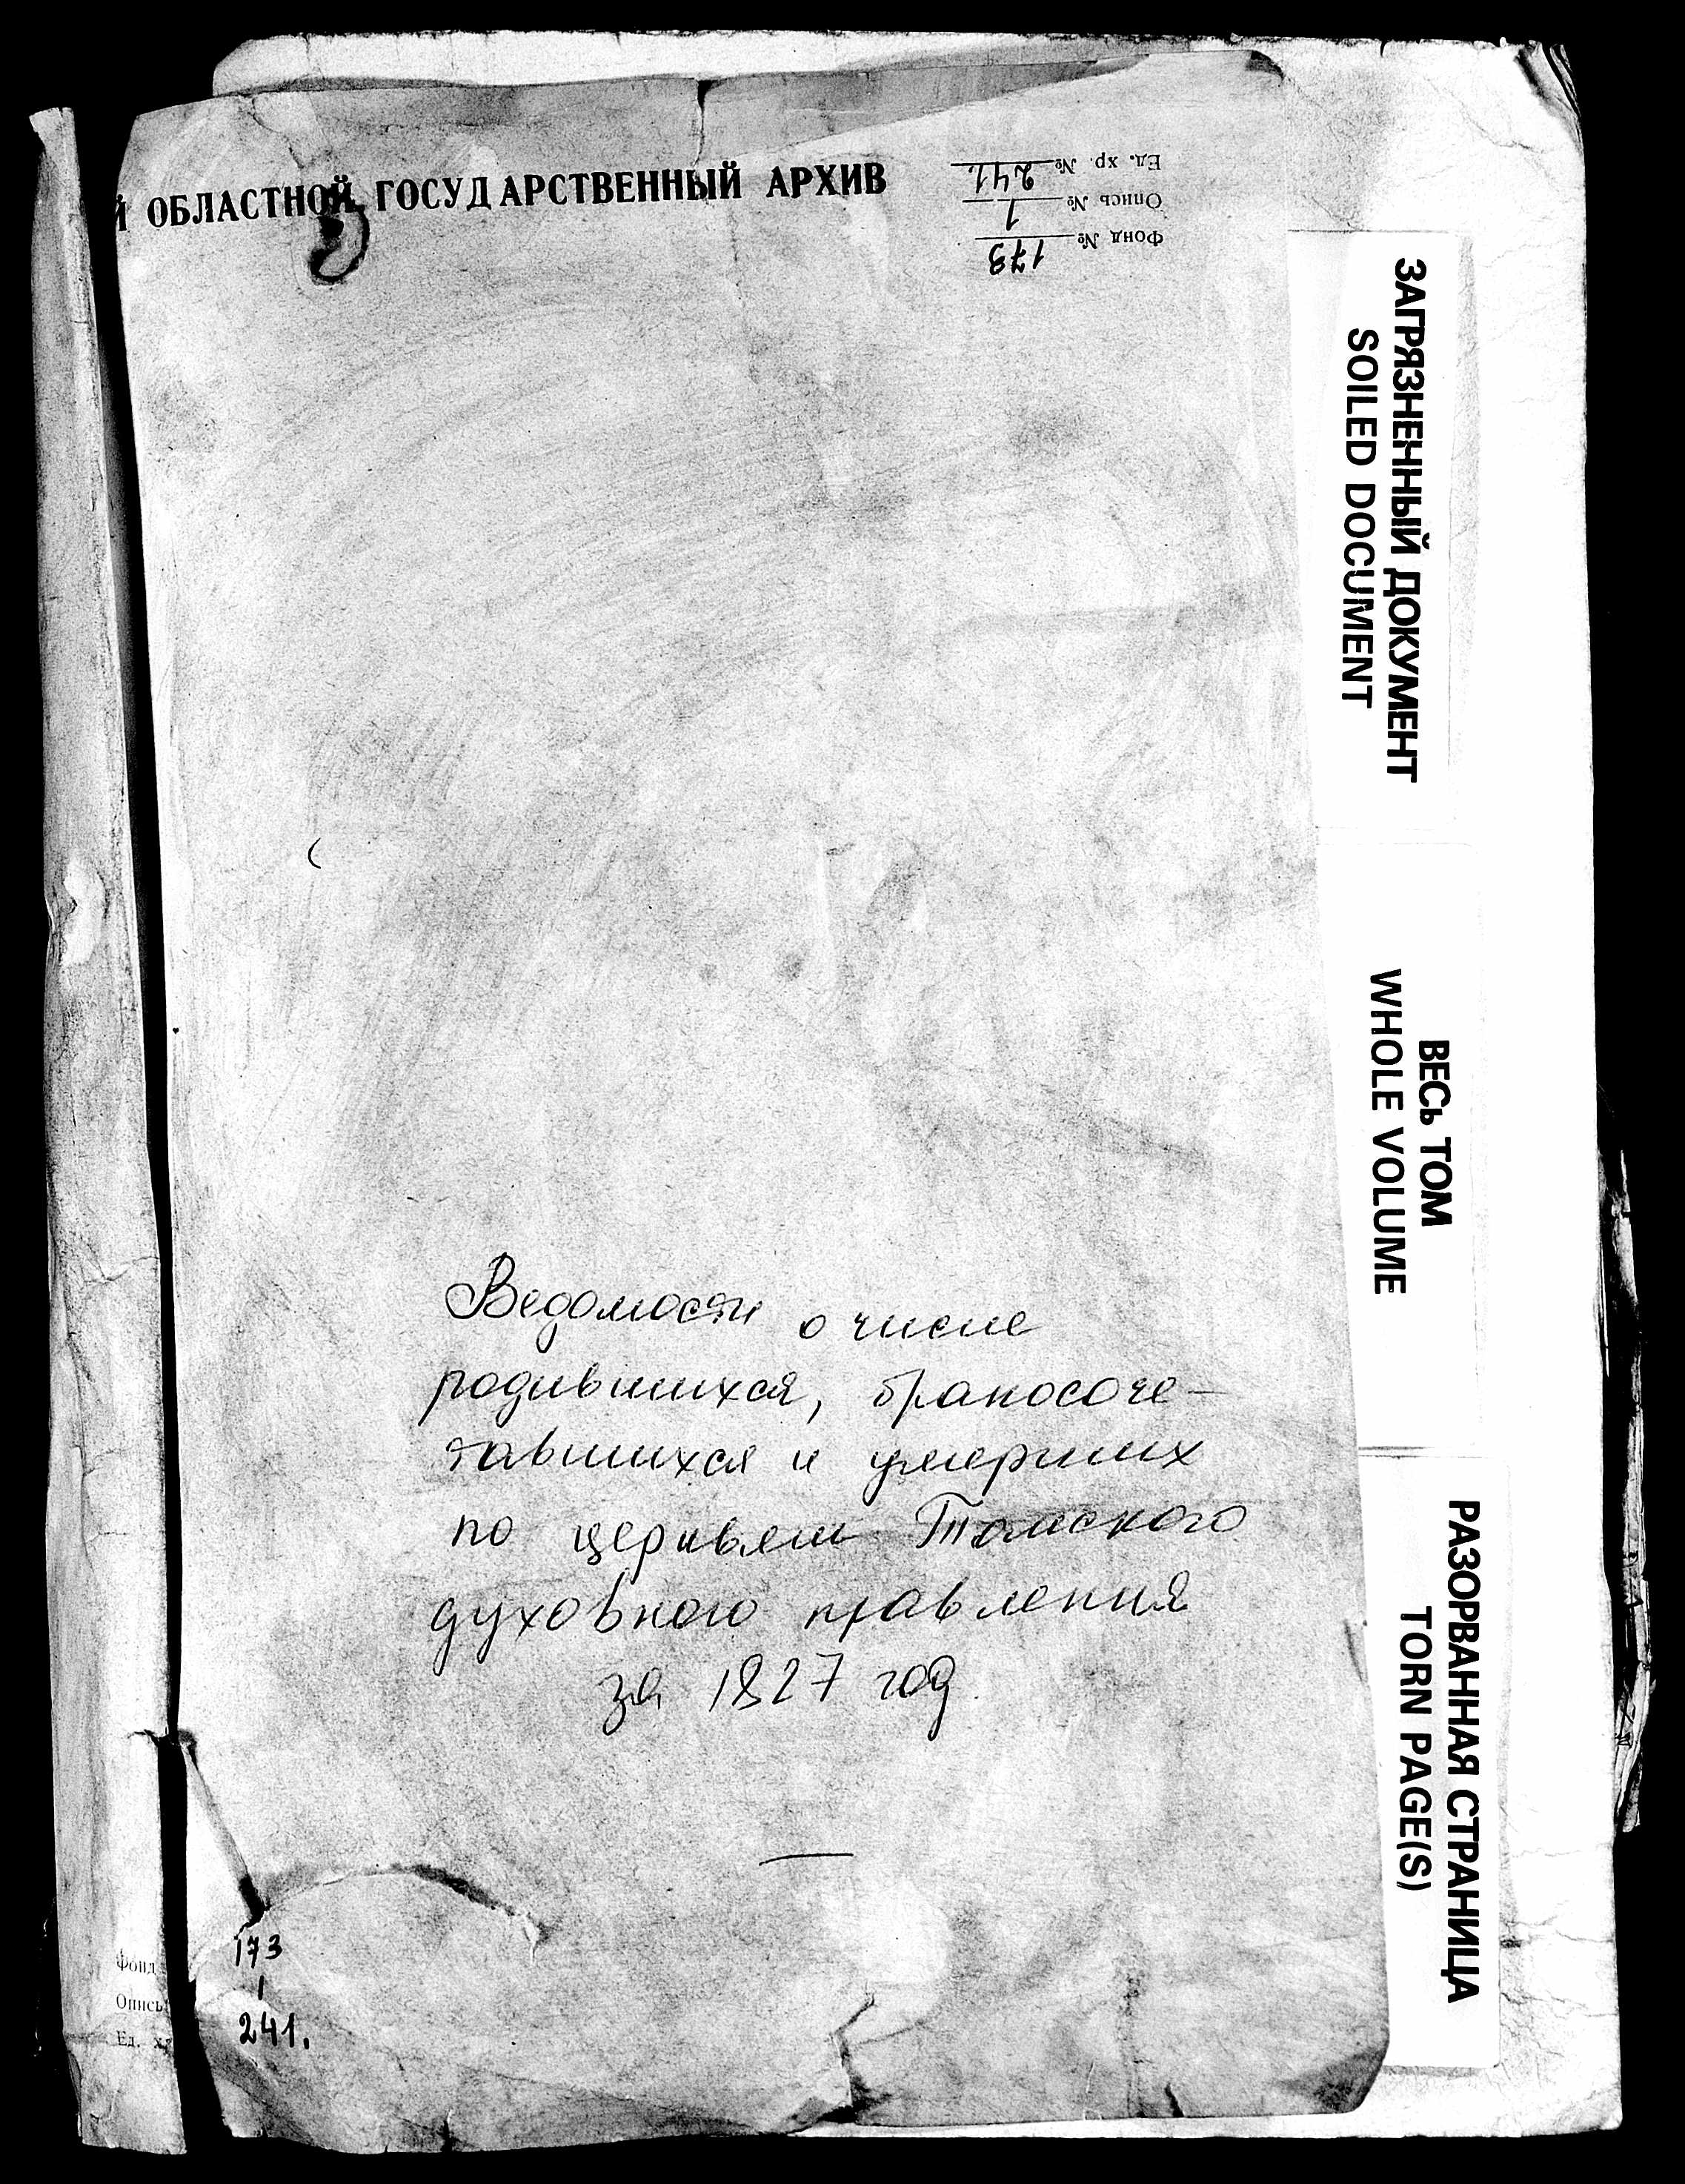 Й ОБЛАСТНОЙ ГОСУДАРСТВЕННЫЙ АРХИВ
Фонд № 173
Опись № 1
Ед. хр. № 241
ЗАГРЯЗНЕННЫЙ ДОКУМЕНТ
SOILED DOCUMENT
ВЕСЬ ТОМ
WHOLE VOLUME
РАЗОРВАННАЯ СТРАНИЦА
TORN PAGE(S)
Ведомости о числе
родившихся, бракосоче-
тавшихся и умерших
по церквям Томского
духовного правления
за 1827 год.
Фонд
Опись
Ед. х
173
1
241.